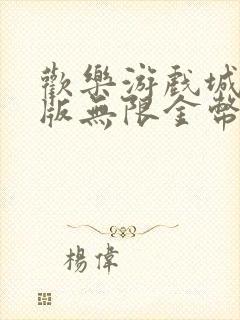 歡樂游戲城
版無限金幣
楊偉